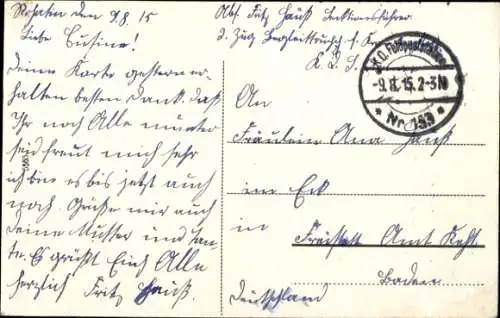 Rohatin den 9/8. 15
Liebe Cusine!
Deine Karte gestern er-
halten besten Dank. daß
Ihr noch Alle munter
seid freut mich sehr
ich bin es bis jetzt auch
noch. Grüße mir auch
Deine Mutter und Tan-
te. Es grüßt Euch Alle
herzlich Fritz Hauß
Abs. Fritz Hauß Sektionsführer
2. Zug
K.D.S.
K.D. Feldpoststation
-9.8.15.2-3N
* Nr. 133 *
An
Fräulein Ana Hauß
im Eck
in Freistett Amt Kehl
Baden
Deutschland